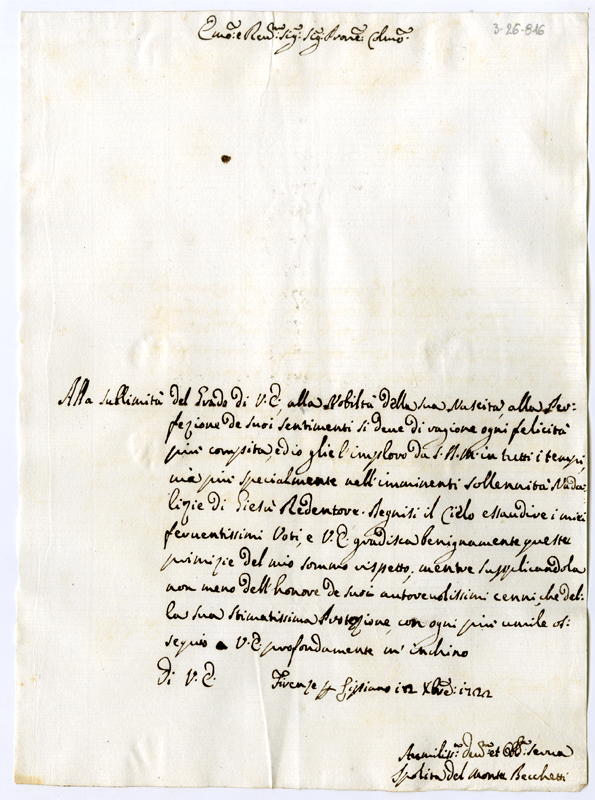 3-26-816
Emo: e Revmo: Sig: Sig: Prone: Colmo:
Alla sublimità del Grado di V. E., alla Nobiltà della sua Nascita, alla Per-
fezione de suoi sentimenti si deue di ragione ogni felicità
più compita, ed io glie l'imploro da S. D. M. in tutti i tempi,
mà più specialmente nell'imminenti sollennità Nata
lizie di Giesù Redentore. Degnisi il Cielo essaudire i miei
feruentissimi Voti, e V. E. gradisca benignamente queste
primizie del mio sommo rispetto, mentre supplicandola
non meno dell'honore de suoi autoreuolissimi cenni, che del-
la sua stimatissima Protezione, con ogni più umile os-
sequio a V. E. profondamente m'inchino
Di V. E. Firenze p Xbre: 1722
Aumiliss: deu: et Obb: Serua
del Monte Becchetti